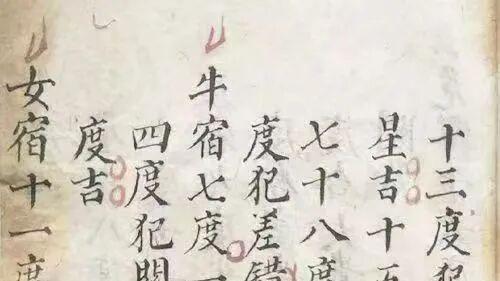 十三度犯
星吉十五
七十八度
度犯差错
牛宿七度一
四度犯関
度吉
女宿十一度